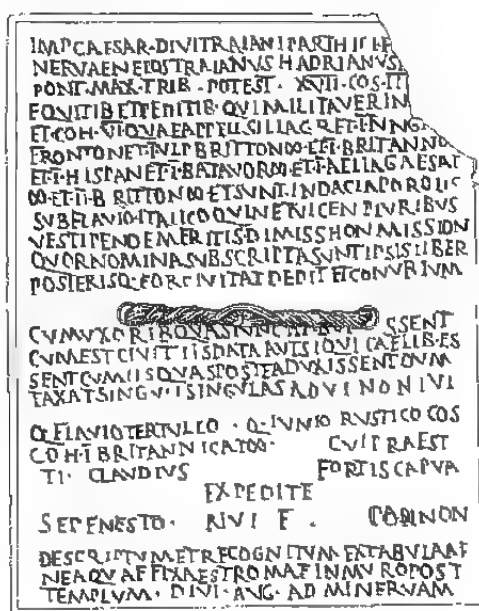 IMP CAESAR·DIVI TRAIANI PARTHICI F
NERVAE NEPOS TRAIANVS HADRIANVS
PONT·MAX·TRIB·POTEST·XVII·COS·III
EQVITIB ET PEDITIB·QVI MILITAVER IN
ET COH·VI·QVAE APPELL SILI AG R ET I
FRONTON ET I VLP BRITTON ∞ ET I BRITANN
ET I HISPAN ET I BATAVOR ∞ ET I AELIA GAESAT
∞ ET II B RITTON ∞ ET SVNT IN DACIA POROLIS
SVB FLAVIO ITALICO QVIN ET VICEN PLVRIBVS
VE STIPEND EMERITIS DIMISS HON MISSION
QVOR NOMINA SVBSCRIPTA SVNT IPSIS LIBER
POSTERISQ·EOR CIVITAT DEDIT ET CONVBIVM
CVM VXORIB QVAS TVNC SSENT
CVM EST CIVIT IIS DATA AVT SI QVI CAELIB·ES
SENT CVM IIS QVAS POSTEA DVXISSENT DVM
TAXAT SINGVLI SINGVLAS A D VI NON IVL
Q FLAVIO TERTVLLO·Q·IVNIO RVSTICO COS
COH·I BRITANNICA TO ∞ CVI PRAEST
TI· CLAVDIVS FORTIS CAPVA
EX PEDITE
SEPENESTO· RIVI F. PANNON
DESCRIPTVM ET RECOGNITVM EX TABVLA AE
NEA QVAE FIXA EST ROMAE IN MVRO POST
TEMPLVM·DIVI·AVG·AD MINERVAM